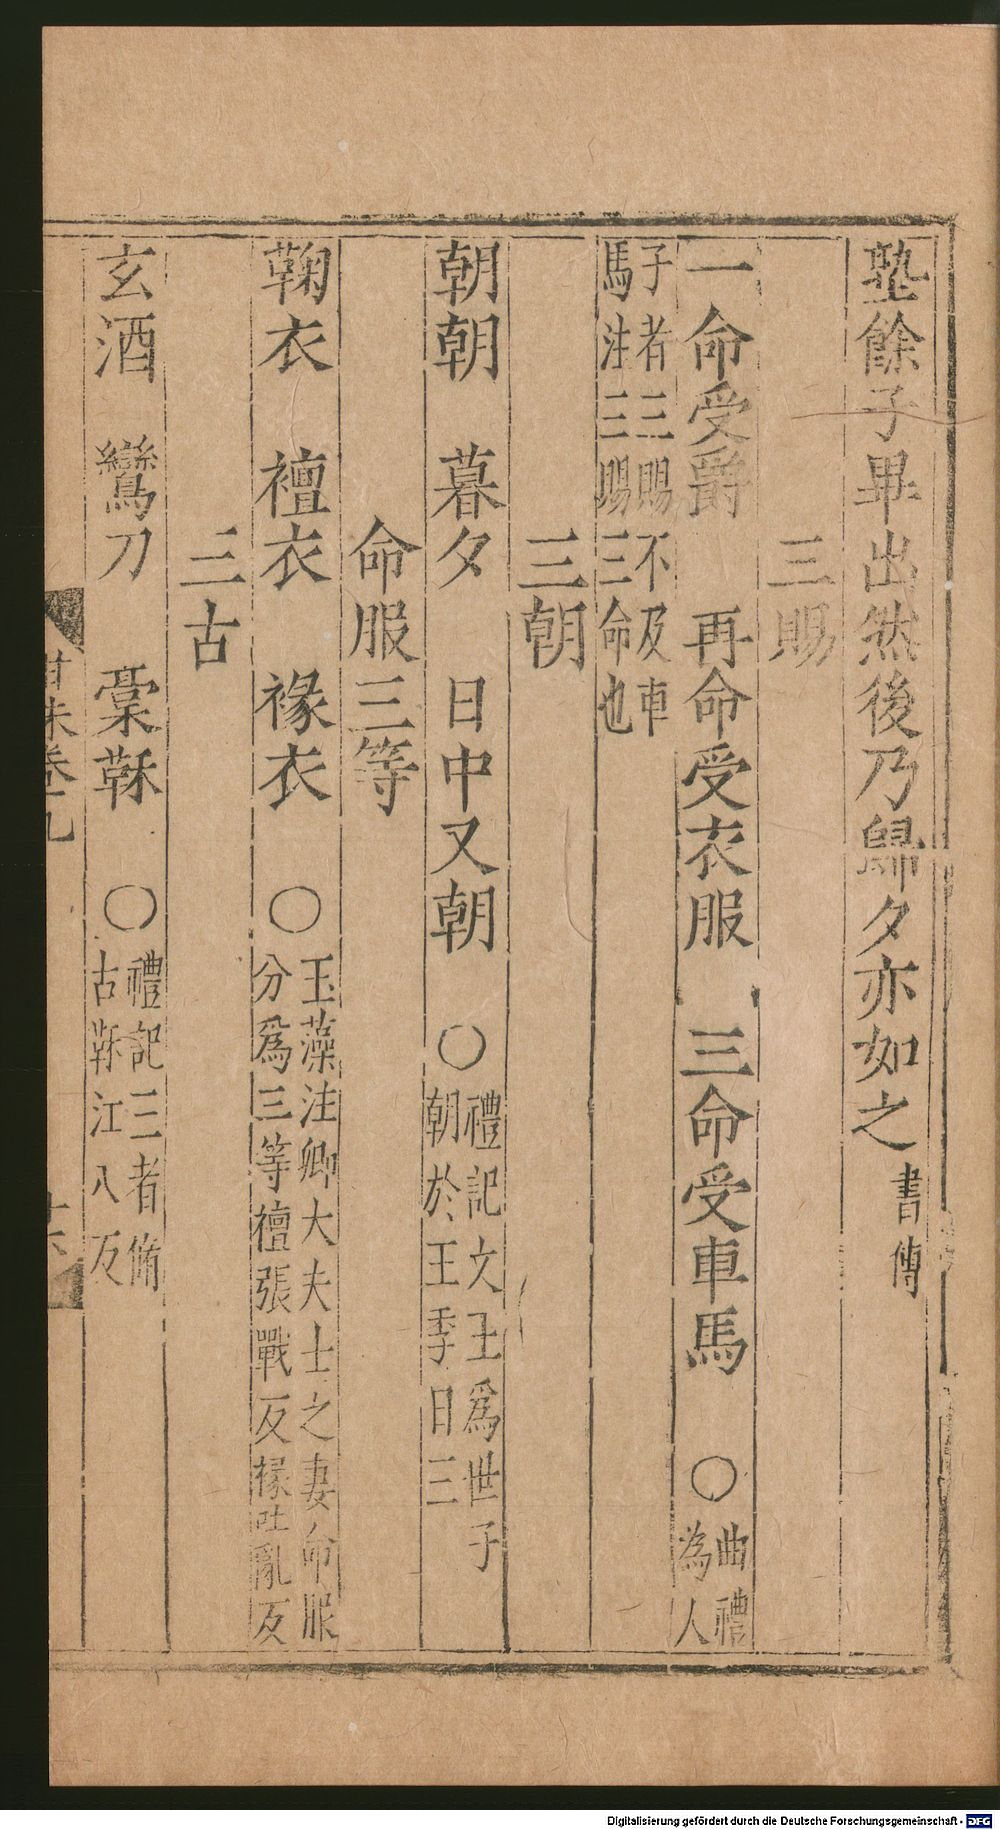 塾餘子畢出然後乃歸夕亦如之書傳
三賜
一命受爵　再命受衣服　三命受車馬　○曲禮
為人
子者三賜不及車
馬注三賜三命也
三朝
朝朝　暮夕　日中又朝　○禮記文王爲世子
朝於王季日三
命服三等
鞠衣　襢衣　褖衣　○玉藻注卿大夫士之妻命服
分爲三等襢張戰反褖吐亂反
三古
玄酒　鸞刀　稾鞂　○禮記三者脩
古鞂江八反
甘朱卷九
十六
Digitalisierung gefördert durch die Deutsche Forschungsgemeinschaft - DFG